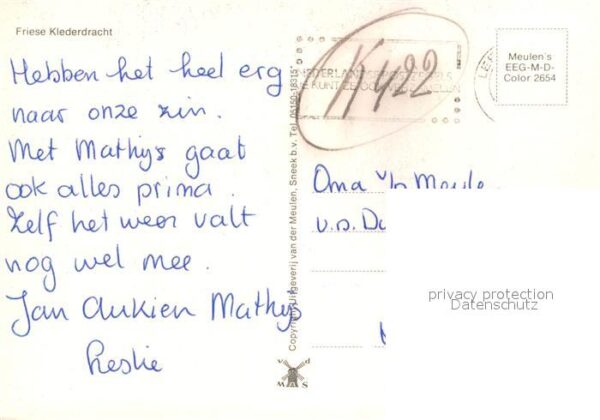 Friese Klederdracht
Hebben het heel erg
naar onze zin.
Met Mathijs gaat
ook alles prima.
Zelf het weer valt
nog wel mee.
Jan Aukien Mathijs
Leskie
K422
NEDERLANDSE POSTZEGELS
Meulen's
EEG-M-D-
Color 2654
Copyright Uitgeverij van der Meulen, Sneek b.v. Tel. (05150-18315*)
Oma v/d Meule
v.s. Da
v d
M A S
privacy protection
Datenschutz